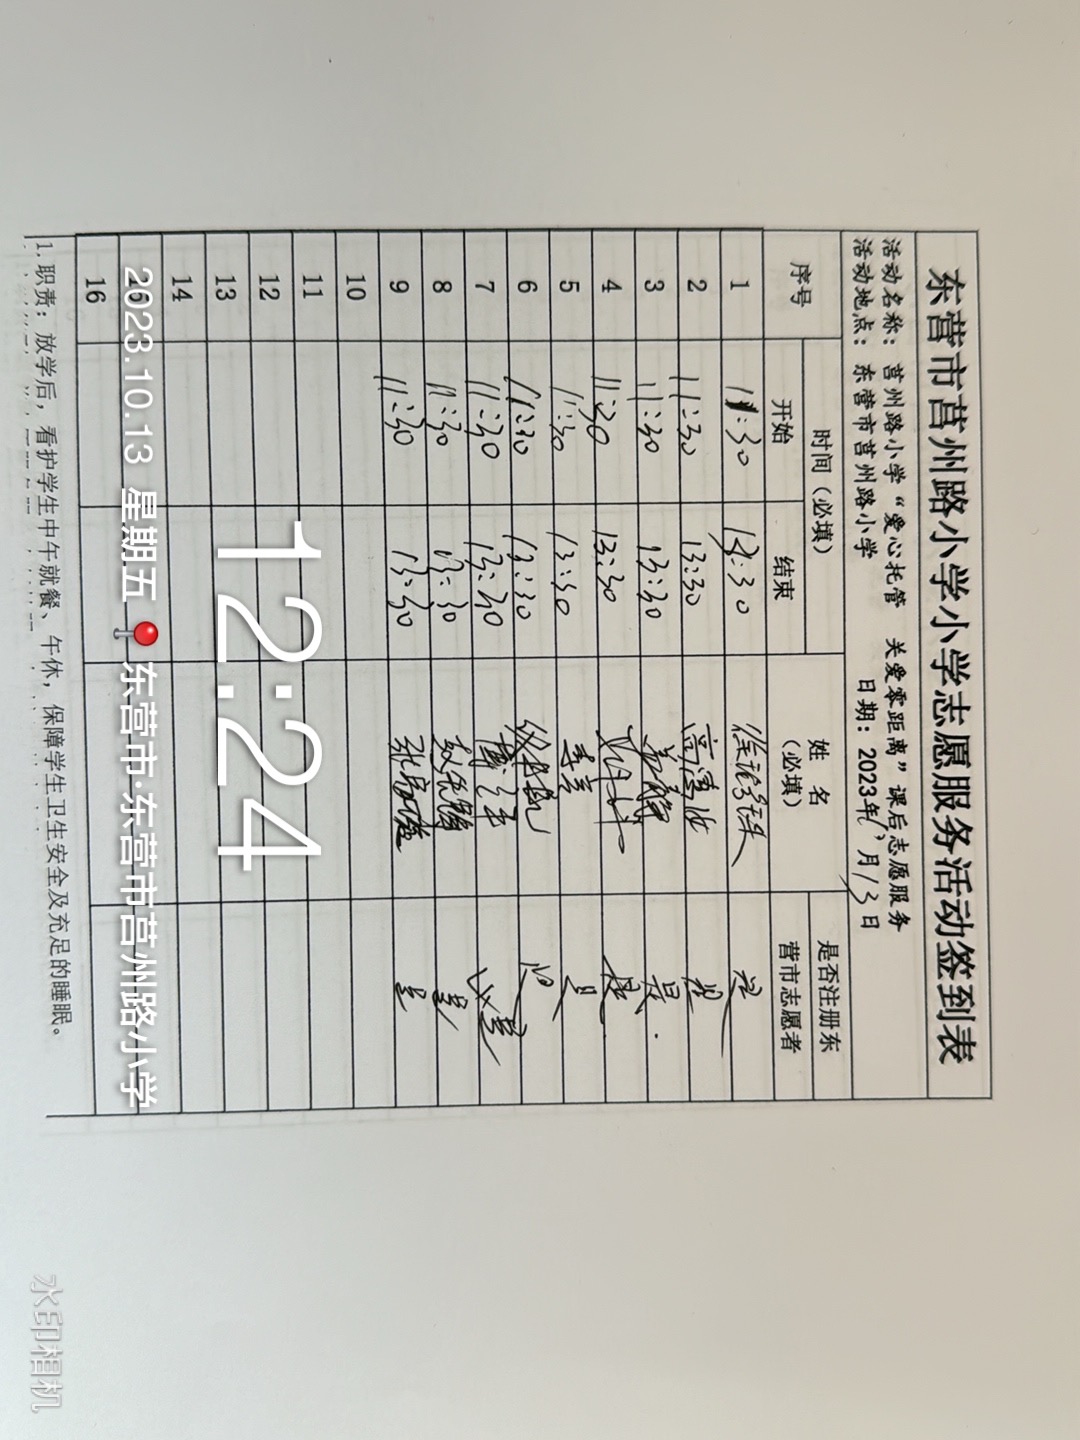 东营市莒州路小学小学志愿服务活动签到表
活动名称：莒州路小学“爱心托管 关爱零距离”课后志愿服务
活动地点：东营市莒州路小学 日期：2023年 月13日
序号 时间（必填） 姓名（必填） 是否注册东营市志愿者
开始 结束
1 11:30 13:30 是
2 11:30 13:30 是
3 11:30 13:30 是
4 11:30 13:30 是
5 11:30 13:30 李芸 是
6 11:30 13:30 是
7 11:30 13:30 是
8 11:30 13:30 是
9 11:30 13:30 是
10
11
12
13
14
16
1.职责：放学后，看护学生中午就餐、午休，保障学生卫生安全及充足的睡眠。
12:24
2023.10.13 星期五 东营市·东营市莒州路小学
水印相机